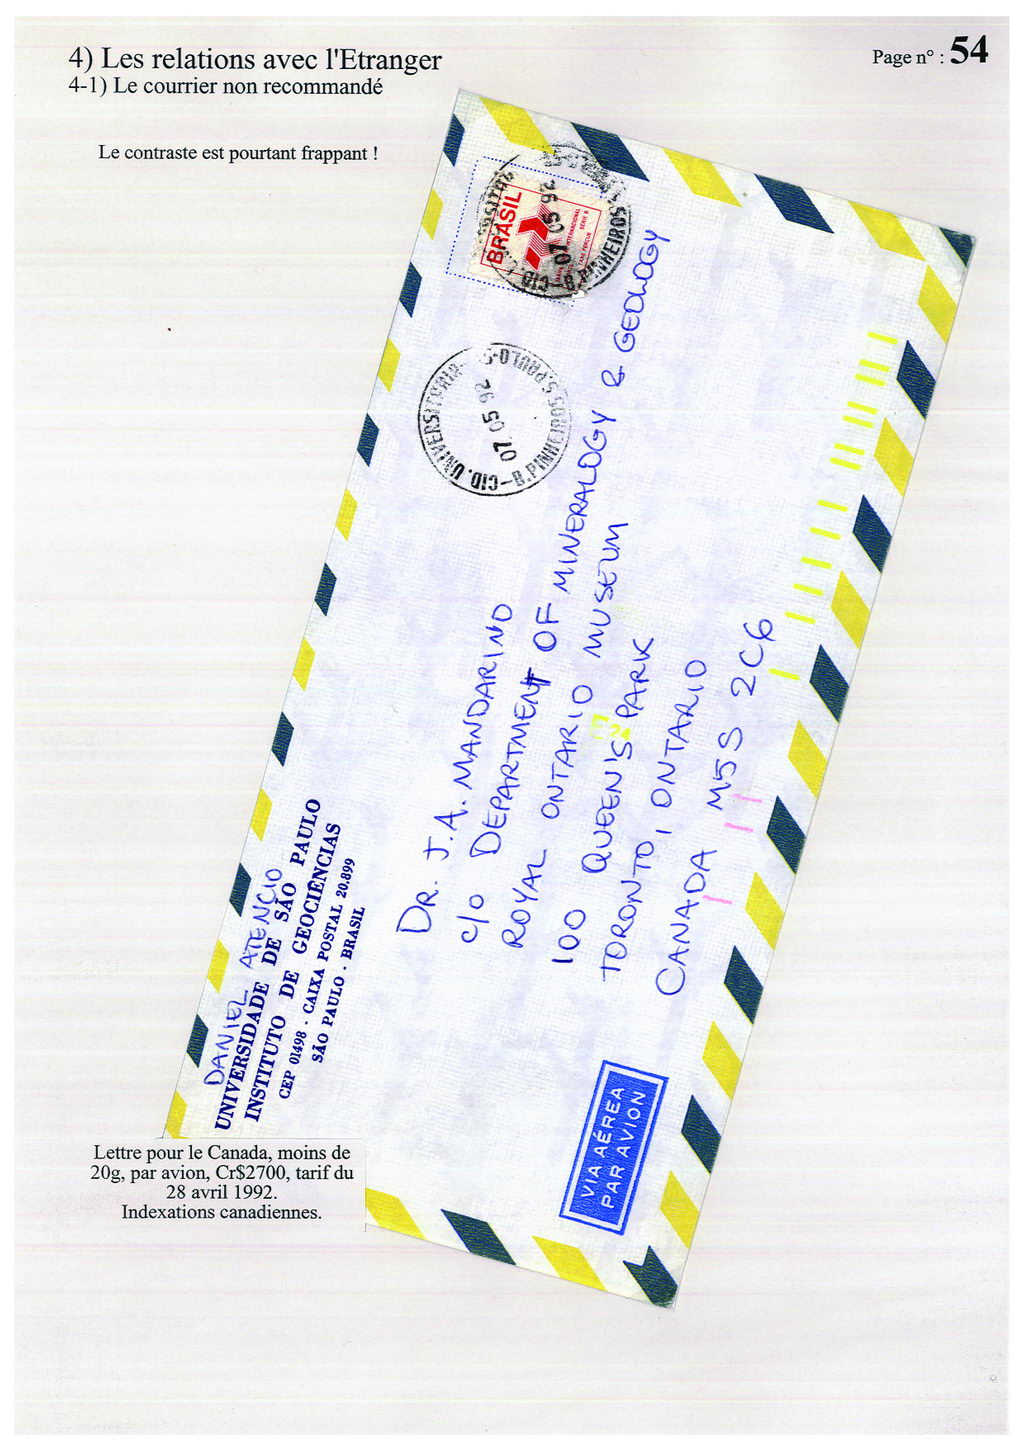 4) Les relations avec l'Etranger
Page n° : 54
4-1) Le courrier non recommandé
Le contraste est pourtant frappant !
BRASIL
INTERNACIONAL
TAXE PERÇUE SÉRIE B
07 05 92
CID.
B. PINHEIROS
CID. UNIVERSITÁRIA
07 05 92
B. PINHEIROS S. PAULO-S
DANIEL ATENCIO
UNIVERSIDADE DE SÃO PAULO
INSTITUTO DE GEOCIÊNCIAS
CEP 01498 - CAIXA POSTAL 20.899
SÃO PAULO - BRASIL
DR. J.A. MANDARINO
c/o DEPARTMENT OF MINERALOGY & GEOLOGY
ROYAL ONTARIO MUSEUM
100 QUEEN'S PARK
TORONTO, ONTARIO
CANADA M5S 2C6
24
VIA AÉREA
PAR AVION
Lettre pour le Canada, moins de
20g, par avion, Cr$2700, tarif du
28 avril 1992.
Indexations canadiennes.